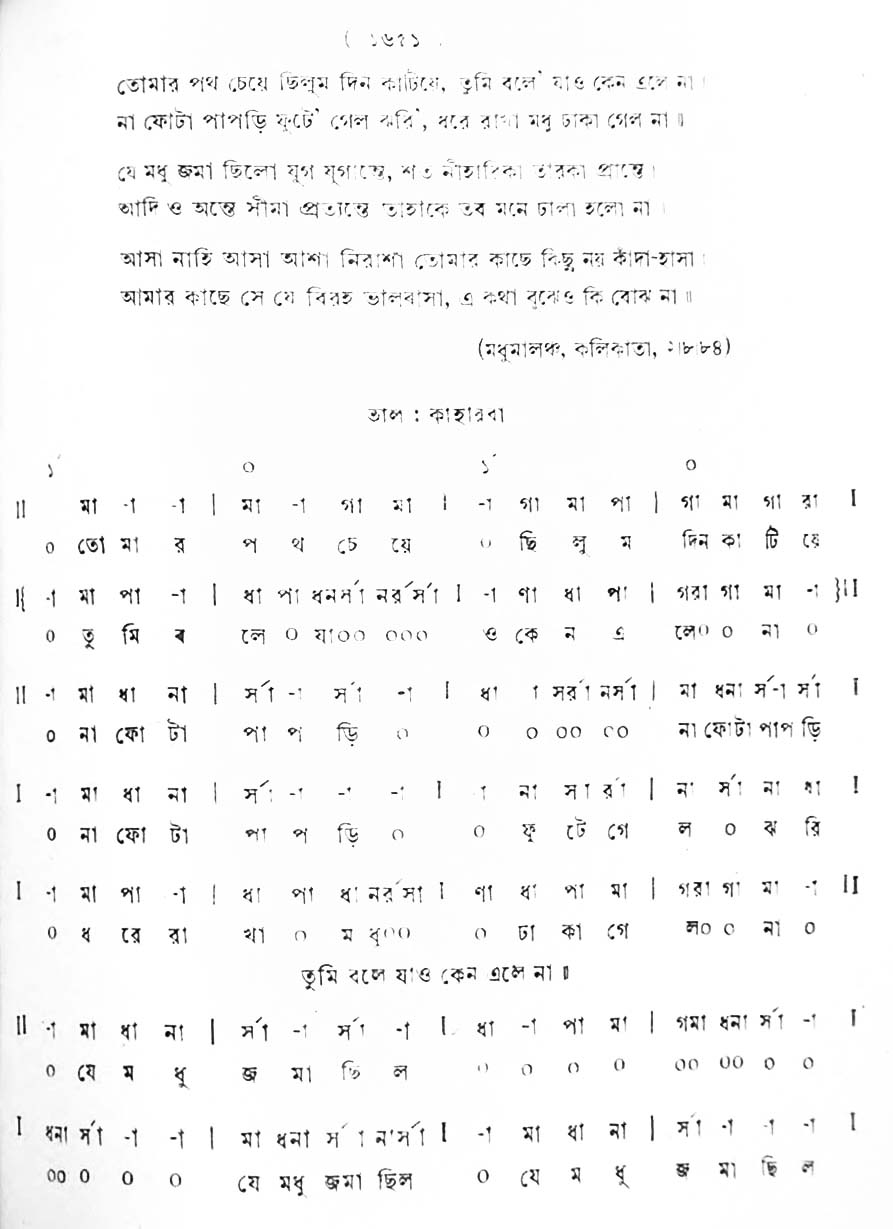 ( ১৬৫১
তোমার পথ চেয়ে ছিলুম দিন কাটিয়ে, তুমি বলে' যাও কেন এলে না।
না ফোটা পাপড়ি ফুটে' গেল ঝরি', ধরে রাখা মধু ঢাকা গেল না॥
যে মধু জমা ছিলো যুগ যুগান্তে, শত নীহারিকা তারকা প্রান্তে।
আদি ও অন্তে সীমা প্রত্যন্তে তাহাকে তব মনে ঢালা হলো না।
আসা নাহি আসা আশা নিরাশা তোমার কাছে কিছু নয় কাঁদা-হাসা।
আমার কাছে সে যে বিরহ ভালবাসা, এ কথা বুঝেও কি বোঝ না॥
(মধুমালঞ্চ, কলিকাতা,
তাল : কাহারবা
১´ ০ ১´ ০
|| মা -া -া | মা -া গা মা I -া গা মা পা | গা মা গা রা I
০ তো মা র প থ চে য়ে ০ ছি লু ম দিন কা টি য়ে
I{ -া মা পা -া | ধা পা ধনর্সা নর্রর্সা I -া ণা ধা পা | গরা গা মা -া }II
০ তু মি ব লে ০ যা০০ ০০০ ও কেন এ লে০ ০ না ০
|| -া মা ধা না | র্সা -া র্সা -া I ধা া সর্রা নর্সা | মা ধনা র্সা -া র্সা I
০ না ফো টা পা প ড়ি ০ ০ ০ ০০ ০০ না ফোটা পাপ ড়ি
I -া মা ধা না | র্সা -া -া -া I া না সা র্রা | না র্সা না ধা I
০ না ফো টা পা প ড়ি ০ ০ ফু টে গে ল ০ ঝ রি
I -া মা পা -া | ধা পা ধা নর্রসা I ণা ধা পা মা | গরা গা মা -া II
০ ধ রে রা খা ০ ম ধু০০ ০ ঢা কা গে ল০ ০ না ০
তুমি বলে যাও কেন এলে না॥
|| -া মা ধা না | র্সা -া র্সা -া I ধা -া পা মা | গমা ধনা র্সা -া I
০ যে ম ধু জ মা ছি ল ০ ০ ০ ০ ০০ ০০ ০ ০
I ধনা র্সা -া -া | মা ধনা র্সা র্না র্সা I -া মা ধা না | র্সা -া -া -া I
০০ ০ ০ ০ যে মধু জমা ছিল ০ যে ম ধু জ মা ছি ল